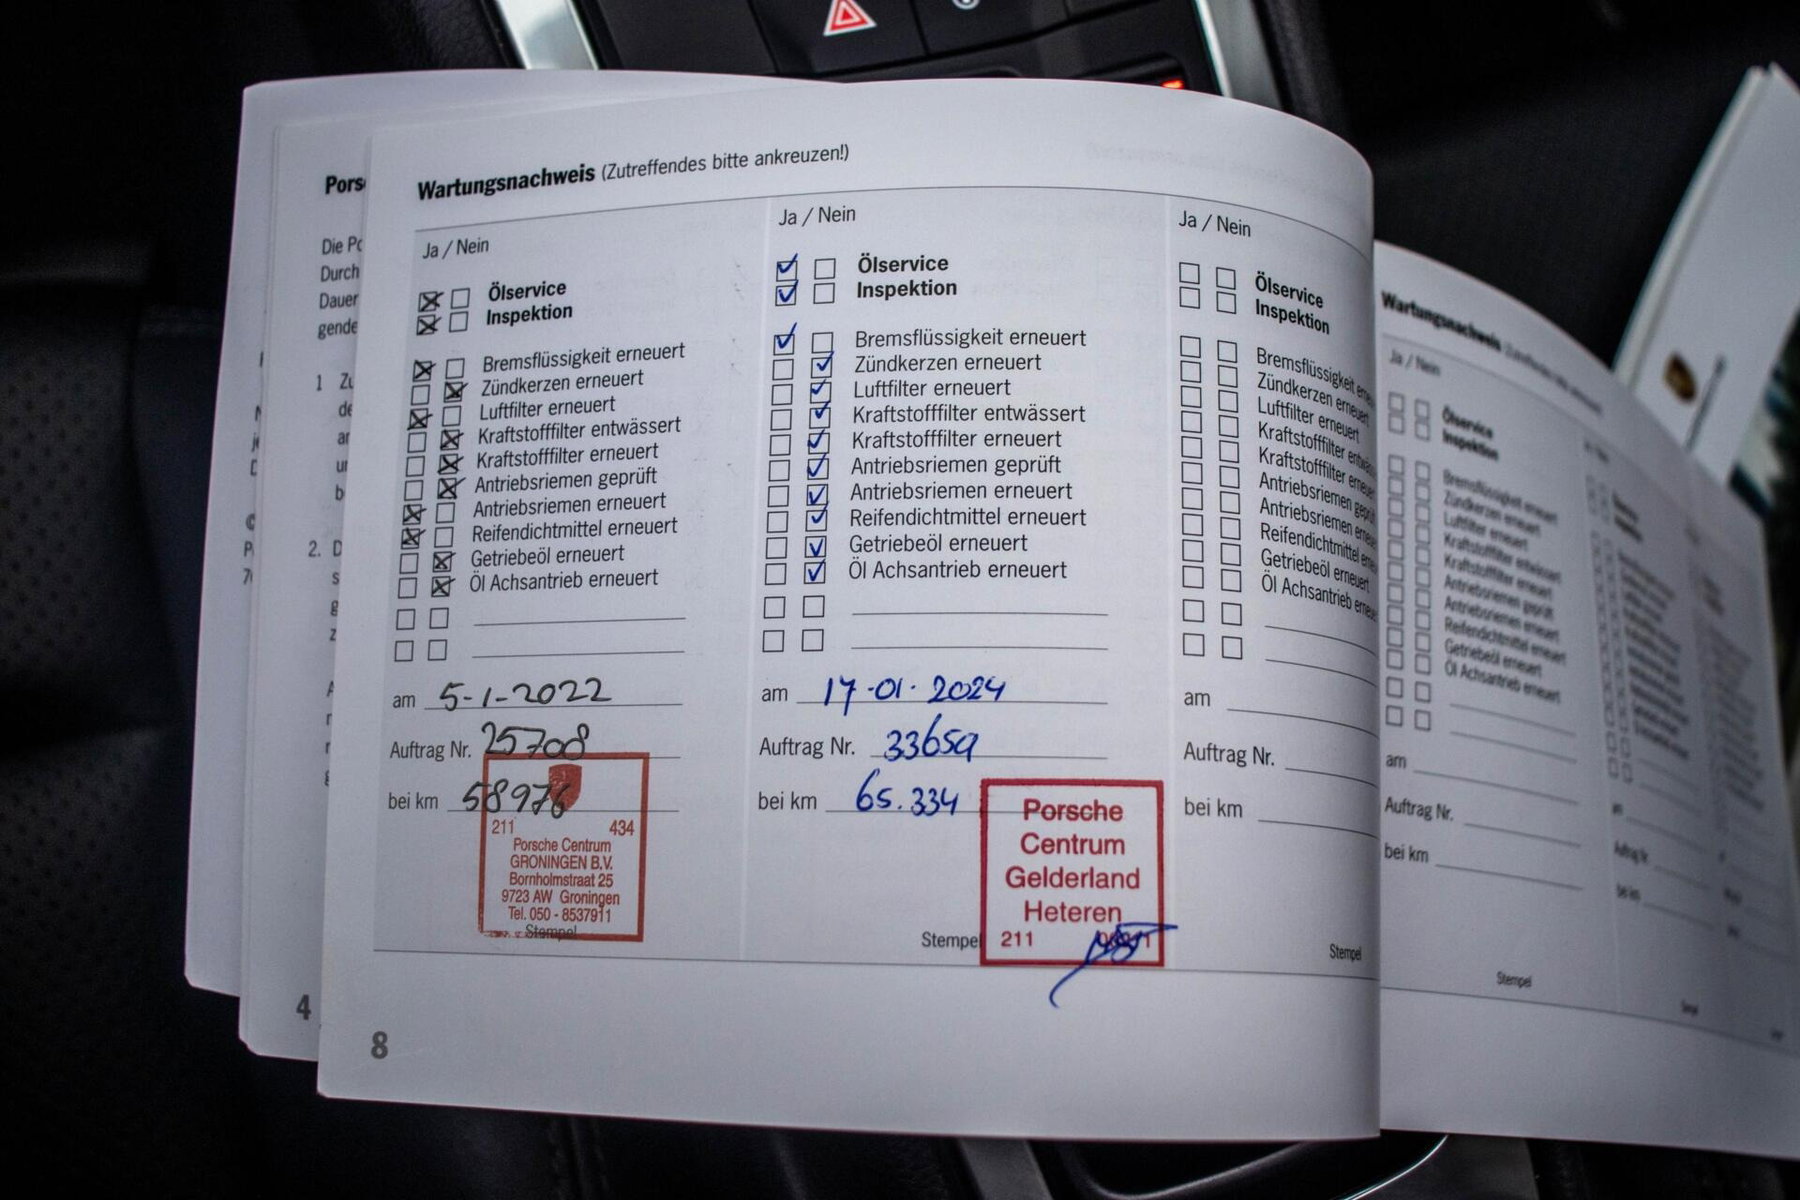 Die
Durch
Dauer
gende
1
2.
4
Wartungsnachweis (Zutreffendes bitte ankreuzen!)
Ja / Nein
Ölservice
Inspektion
Bremsflüssigkeit erneuert
Zündkerzen erneuert
Luftfilter erneuert
Kraftstofffilter entwässert
Kraftstofffilter erneuert
Antriebsriemen geprüft
Antriebsriemen erneuert
Reifendichtmittel erneuert
Getriebeöl erneuert
Öl Achsantrieb erneuert
am 5-1-2022
Auftrag Nr. 25708
bei km 58976
211 434
Porsche Centrum
GRONINGEN B.V.
Bornholmstraat 25
9723 AW Groningen
Tel. 050 - 8537911
Stempel
8
Ja / Nein
Ölservice
Inspektion
Bremsflüssigkeit erneuert
Zündkerzen erneuert
Luftfilter erneuert
Kraftstofffilter entwässert
Kraftstofffilter erneuert
Antriebsriemen geprüft
Antriebsriemen erneuert
Reifendichtmittel erneuert
Getriebeöl erneuert
Öl Achsantrieb erneuert
am 17-01-2024
Auftrag Nr. 33659
bei km 65.334
Porsche
Centrum
Gelderland
Heteren
Stempel 211
Ja / Nein
Ölservice
Inspektion
Bremsflüssigkeit
Zündkerzen erneuert
Luftfilter erneuert
Kraftstofffilter
Kraftstofffilter
Antriebsriemen
Antriebsriemen
Reifendichtmittel
Getriebeöl erneuert
Öl Achsantrieb
am
Auftrag Nr.
bei km
Stempel
Wartungsnachweis
Ja / Nein
Ölservice
Inspektion
Bremsflüssigkeit erneuert
Zündkerzen erneuert
Luftfilter erneuert
Kraftstofffilter entwässert
Kraftstofffilter erneuert
Antriebsriemen geprüft
Antriebsriemen erneuert
Reifendichtmittel erneuert
Getriebeöl erneuert
Öl Achsantrieb erneuert
am
Auftrag Nr.
bei km
Stempel